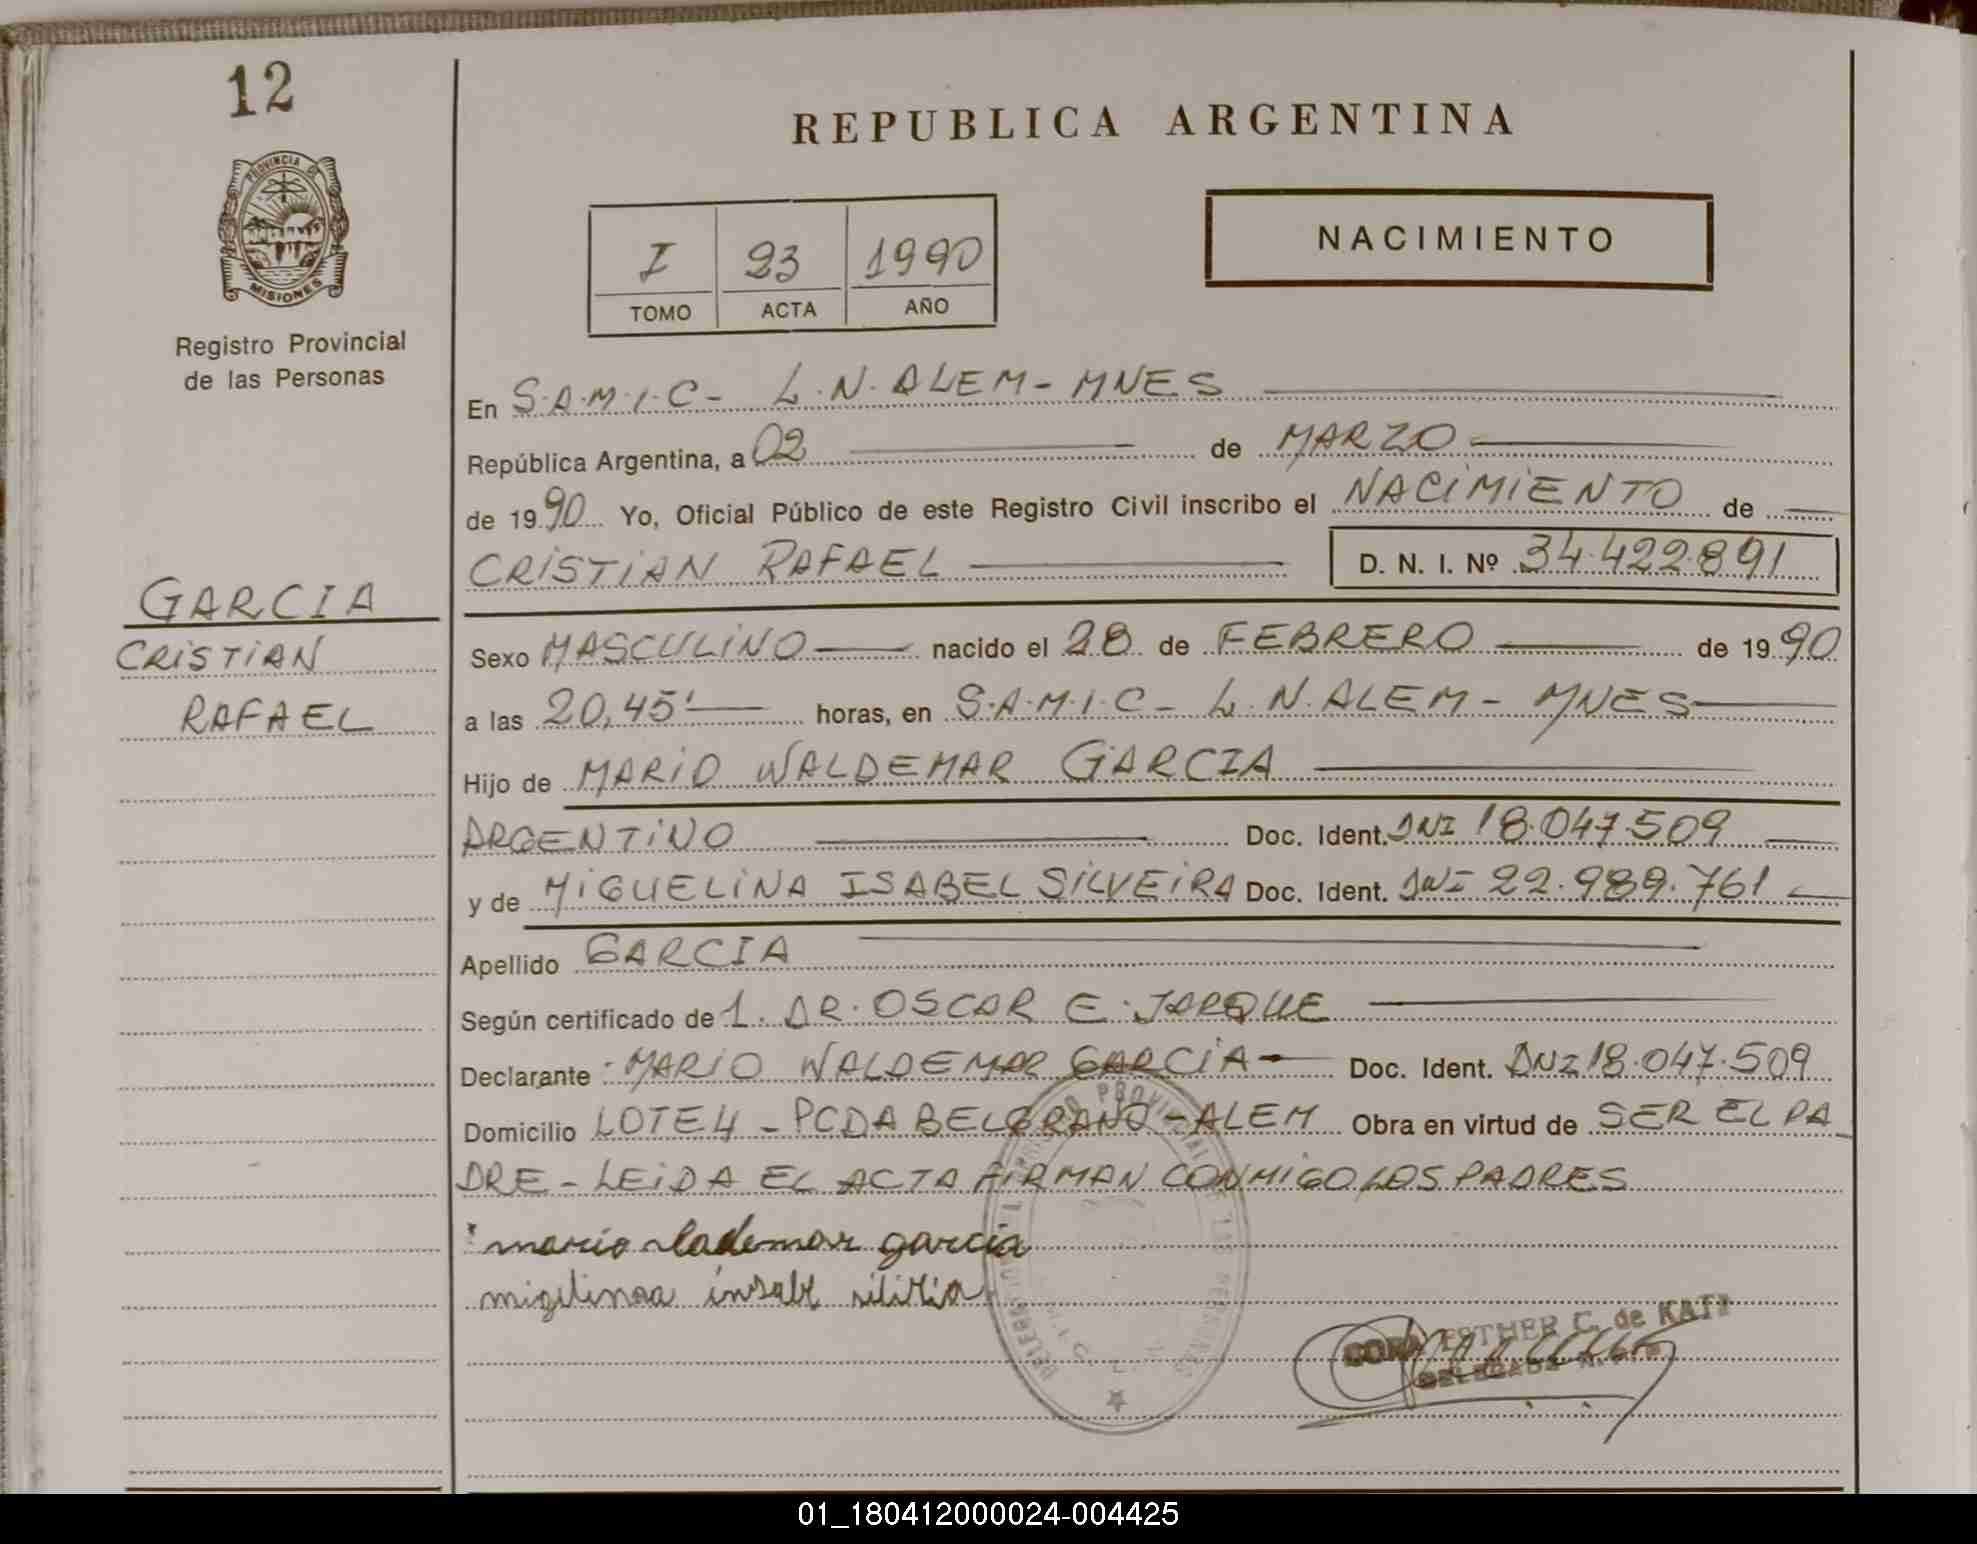 12
REPUBLICA ARGENTINA
PROVINCIA DE
MISIONES
Registro Provincial
de las Personas
I 23 1990
TOMO ACTA AÑO
NACIMIENTO
En S.A.M.I.C- L.N. ALEM- MNES
República Argentina, a 02 de MARZO
de 1990 Yo, Oficial Público de este Registro Civil inscribo el NACIMIENTO de
CRISTIAN RAFAEL D. N. I. Nº 34.422.891
GARCIA
CRISTIAN
RAFAEL
Sexo MASCULINO nacido el 28 de FEBRERO de 1990
a las 20,45' horas, en S.A.M.I.C- L.N. ALEM - MNES
Hijo de MARIO WALDEMAR GARCIA
ARGENTINO Doc. Ident. DNI 18.047.509
y de MIGUELINA ISABEL SILVEIRA Doc. Ident. DNI 22.989.761
Apellido GARCIA
Según certificado de 1. DR. OSCAR E. JARQUE
Declarante MARIO WALDEMAR GARCIA Doc. Ident. DNI 18.047.509
Domicilio LOTE 4 - PCDA BELGRANO - ALEM Obra en virtud de SER EL PA
DRE - LEIDA EL ACTA FIRMAN CONMIGO LOS PADRES
mario vlademar garcia
ESTHER C. de
01_180412000024-004425